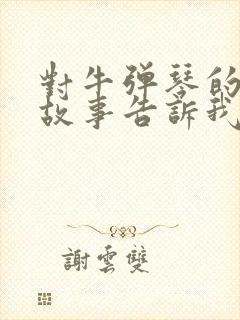 對牛彈琴的
故事告訴我
謝雲雙